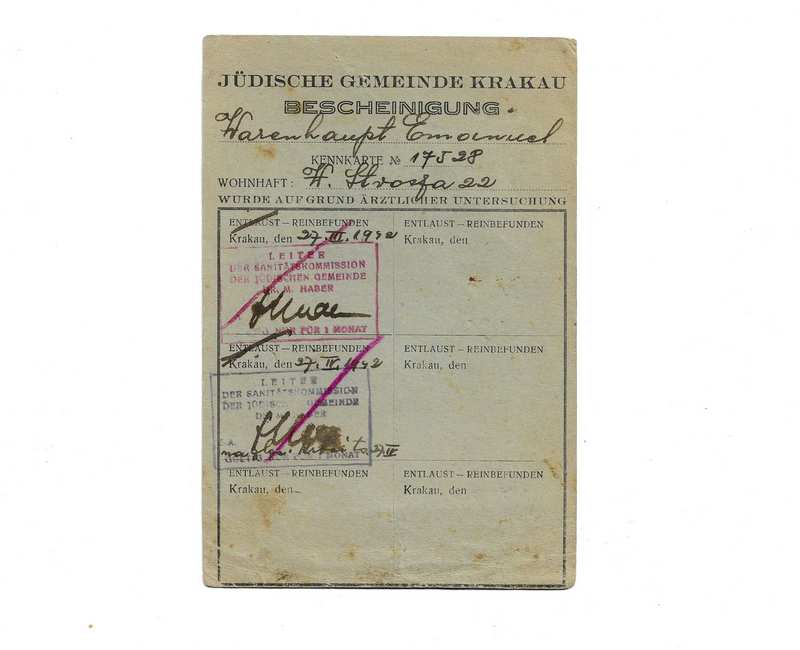 JÜDISCHE GEMEINDE KRAKAU
BESCHEINIGUNG
Warenhaupt Emanuel
KENNKARTE № 17528
WOHNHAFT: W. Stwosza 22
WURDE AUFGRUND ÄRZTLICHER UNTERSUCHUNG
ENTLAUST — REINBEFUNDEN
Krakau, den 27. III. 1942
LEITER
DER SANITÄTSKOMMISSION
DER JÜDISCHEN GEMEINDE
DR. M. HABER
NUR FÜR 1 MONAT
ENTLAUST — REINBEFUNDEN
Krakau, den 27. IV. 1942
LEITER
DER SANITÄTSKOMMISSION
DER JÜDISCH GEMEINDE
HABER
1 MONAT
ENTLAUST — REINBEFUNDEN
Krakau, den
ENTLAUST — REINBEFUNDEN
Krakau, den
ENTLAUST — REINBEFUNDEN
Krakau, den
ENTLAUST — REINBEFUNDEN
Krakau, den